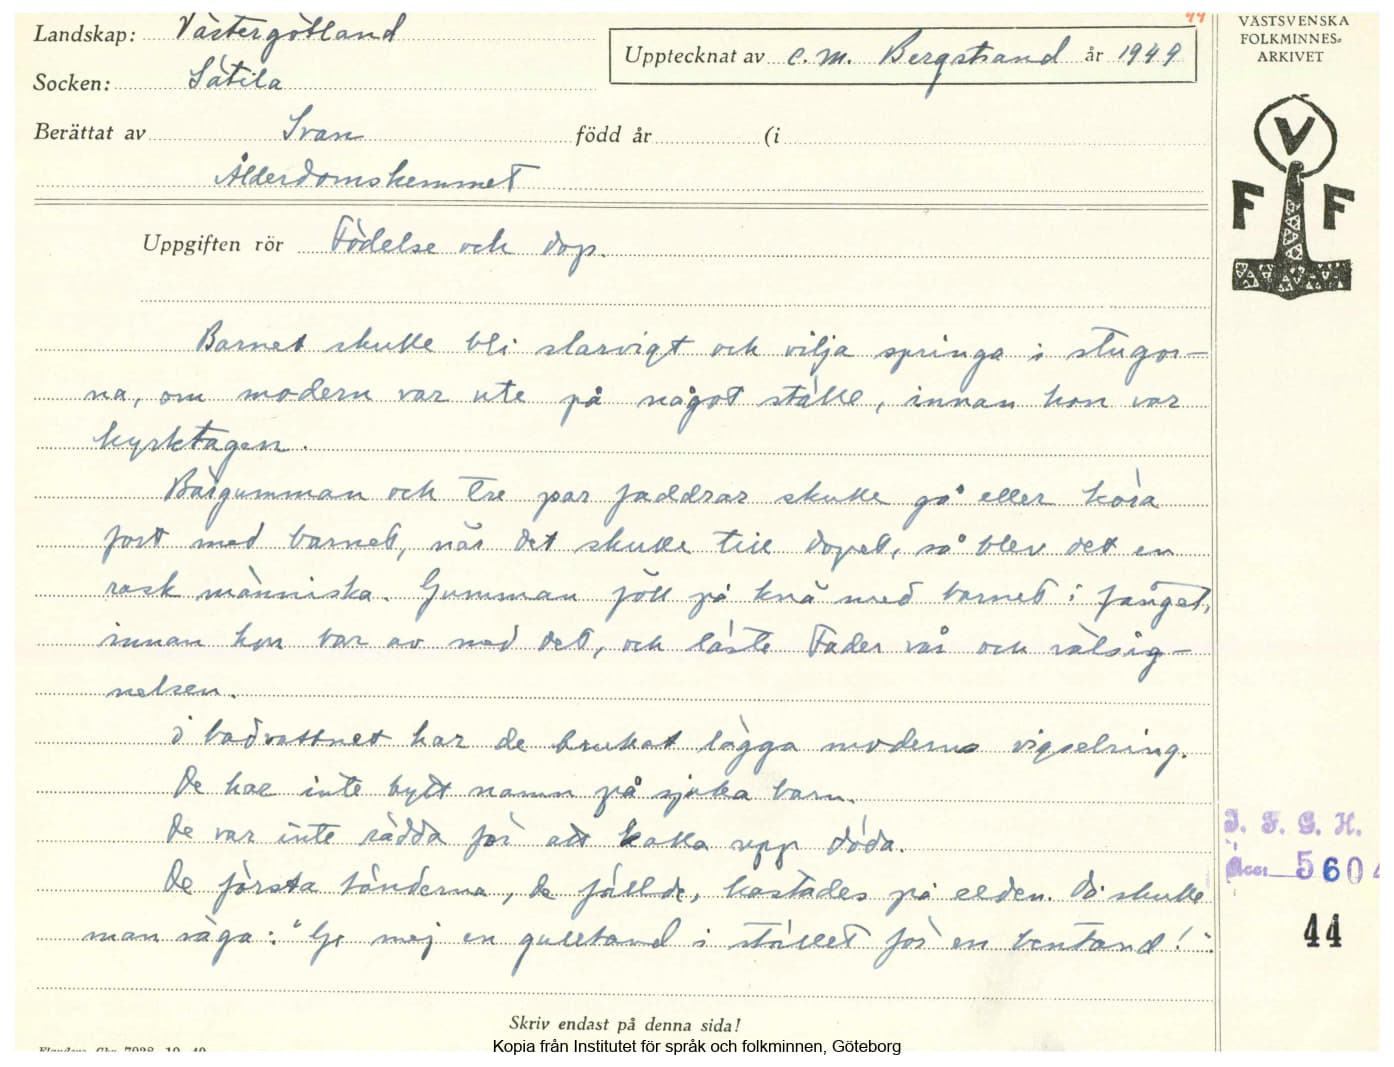 44
Landskap: Västergötland
Socken: Sätila
Upptecknat av C. M. Bergstrand år 1949
Berättat av Ivan född år (i
Ålderdomshemmet
Uppgiften rör Födelse och dop.
Barnet skulle bli slarvigt och vilja springa i stugor-
na, om modern var ute på något ställe, innan hon var
kyrktagen.
Bärgumman och tre par faddrar skulle gå eller köra
fort med barnet, när det skulle till dopet, så blev det en
rask människa. Gumman föll på knä med barnet i fånget,
innan hon bar av med det, och läste Fader vår och välsig-
nelsen.
I badvattnet har de brukat lägga moderns vigselring.
De har inte bytt namn på sjuka barn.
De var inte rädda för att kalla upp döda.
De första tänderna, de fällde, kastades på elden. Då skulle
man säga: "Ge mej en gulltand i stället för en bentand!"
Skriv endast på denna sida!
Kopia från Institutet för språk och folkminnen, Göteborg
VÄSTSVENSKA
FOLKMINNES-
ARKIVET
V
F F
I. F. G. H.
Acc. 5604
44